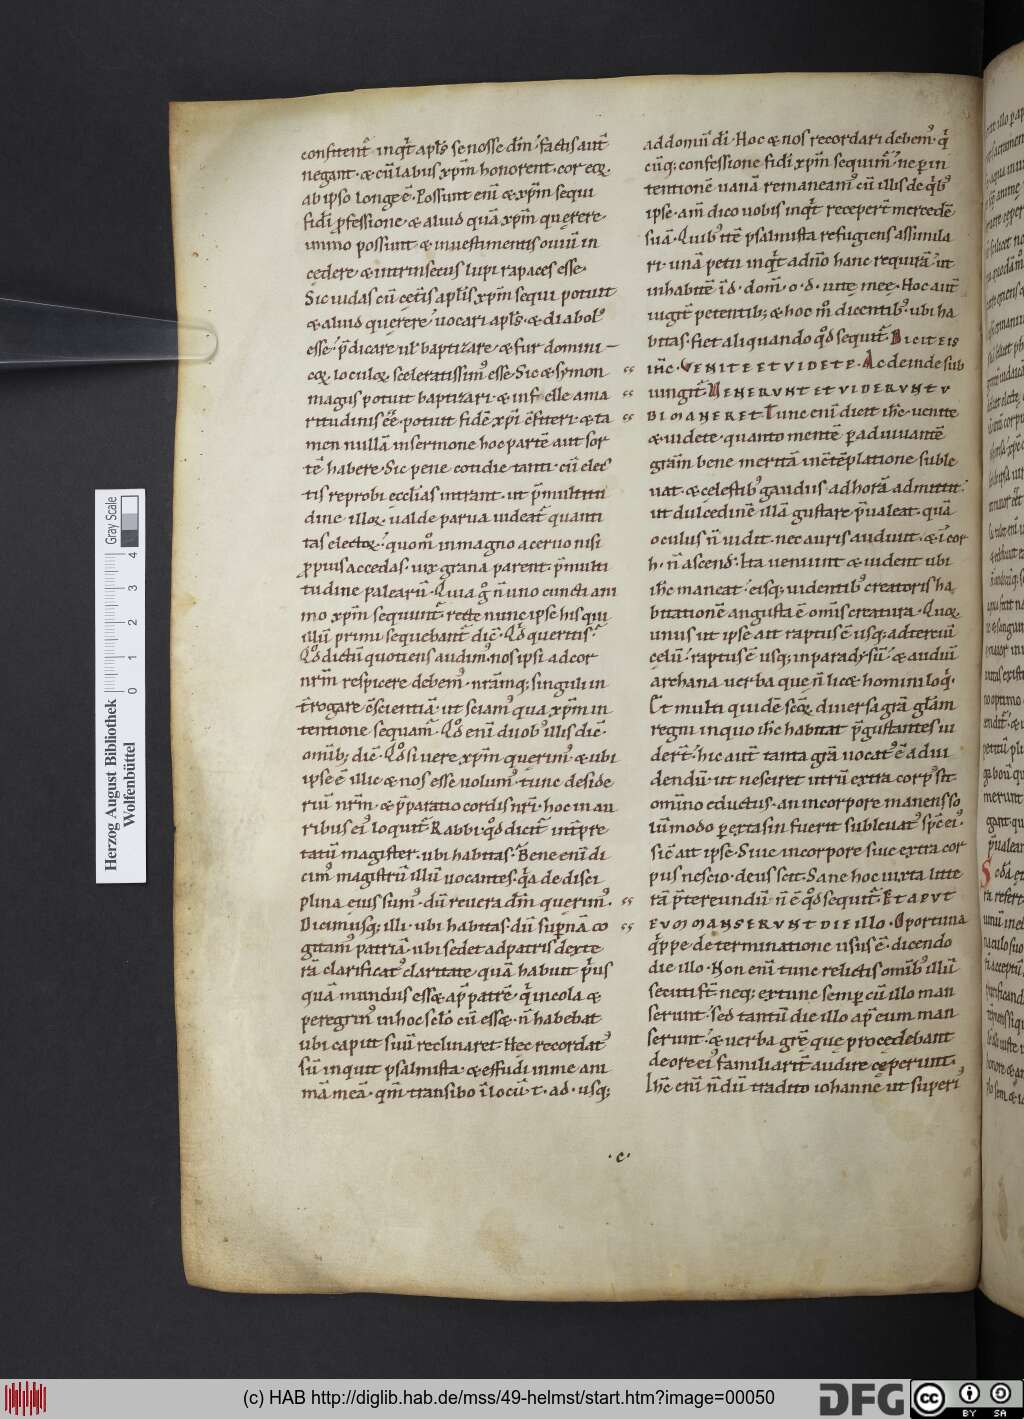 confitent᷑ inq̇t apłs se nosse dm̄. factis aut̄
negant. & cū labiis xp̄m honorent. cor eoꝝ
ab ipso longe ē. Possunt enī & xp̄m sequi
fidei ꝓfessione. & aliud quā xp̄m querere.
immo possunt & in uestimentis ouiū in
cedere. & intrinsecus lupi rapaces esse.
Sic iudas cū cęt̄is aplīs xp̄m sequi potuit
& aliud querere. uocari apłs. & diabolꝰ
esse. p̄dicare uł baptizare. & fur domini
coꝝ. loculoꝝ sceleratissimꝰ esse. Sic & symon
magus potuit baptizari. & in felle ama
ritudinis eē̄. potuit fidē xp̄i ꝯfiteri. & ta
men nullā in sermone hoc partē aut sor
tē habere. Sic pene cotidie tanti cū elec
tis reprobi ecclīas intrant. ut p̄ multitu
dine illoꝝ ualde parua uideat᷑ quanti
tas electoꝝ. quom̊ in magno aceruo nisi
ꝓpius accedas. uix grana parent. p̄ multi
tudine palearū. Quia g̊ n̄ uno cuncti ani
mo xp̄m sequunt᷑. recte nunc ipse his qui
illū primi sequebant᷑ dic̄. Qd̊ queritis.
Qd̊ dictū quotiens audimꝰ. nos ipsi ad cor
nr̄m respicere debemꝰ. nrāmq; singuli in
t̄rogare ꝯscientiā. ut sciamꝰ qua xp̄m in
tentione sequam᷑. Qd̊ enī duobꝰ illis dic̄.
omīb; dic̄. Qd̊ si uere xp̄m querimꝰ. & ubi
ipse ē illic & nos esse uolumꝰ. tunc deside
riū nr̄m. & p̄paratio cordis nr̄i. hoc in au
ribus eiꝰ loquit᷑. Rabbi qd̊ dicit᷑ int̄pre
tatū magister. ubi habitas. Bene enī di
cimꝰ magistrū illū uocantes. qa de disci
plina eius sumꝰ. dū reuera dm̄ querimꝰ.
Dicimusq; illi. ubi habitas. dū sup̄nā co
gitamꝰ patriā. ubi sedet ad patris dexte
rā clarificatꝰ claritate. quā habuit ṗus
quā mundus ess& ap̄ patrē. q̇ incola &
peregrinꝰ in hoc sclō cū ess&. n̄ habebat
ubi caput suū reclinaret. Hec recordatꝰ
sū inquit psalmista. & effudi in me ani
mā meā. qm̄ transibo ī locū. t. ad. usq;
ad domū di. Hoc & nos recordari debemꝰ. q̇
cūq; confessione fidei xp̄m sequim᷑. ne ꝑ in
tentionē uanā remaneamꝰ cū illis de qb̾
ipse. am̄ dico uobis inq̇t recepert̄ mercedē
suā. Quibꝰ itē psalmista refugiens assimila
ri. unā petii inq̇t a dn̄o hanc requirā. ut
inhabitē ī d. dom̄. o. d. uite meę. Hoc aut̄
iugit̄ petentib; & hoc m̊ dicentibꝰ. ubi ha
bitas. fiet aliquando qd̊ sequit᷑. Dicit eis
ih̄c. VENITE ET VIDETE. Ac deinde sub
iungit᷑. VENERVNT ET VIDERVNT V
BI MANERET. Tunc enī dicit ih̄c. uenite
& uidete. quanto mentē ꝑ adiuuantē
gratīam bene meritā in ꝯtēplatione suble
uat. & celestibꝰ gaudiis ad horā admittit.
ut dulcedinē illā gustare p̄ualeat. quā
oculus n̄ uidit. nec auris audiuit. & ī cor
h. n̄ ascend̄. Ita ueniunt & uident ubi
ih̄c maneat. eisq; uidentibꝰ creatoris ha
bitationē angusta ē omīs creatura. Quoꝝ
unus ut ipse ait raptus ē usq; ad terciū
celū. raptus ē usq; in paradysū. & audiuit
archana uerba que n̄ lic& homini loq̇.
Et multi quidē scoꝝ diuersa grā głam
regni in quo ih̄c habitat p̄gustantes ui
der̄t. hic aut̄ tanta grā uocatꝰ ē ad ui
dendū. ut nesciret utrū extra corpꝰ sit
omīno eductus. an in corpore manens so
lū modo ꝑ extasin fuerit subleuatꝰ sp̄c eiꝰ.
Sic̄ ait ipse. Siue in corpore siue extra cor
pus nescio. deus scit. Sane hoc iuxta litte
rā p̄tereundū n̄ ē qd̊ sequit᷑. ET APVT
EVM MANSERVNT DIE illo. Oportuna
q̇ppe determinatione usus ē. dicendo
die illo. Non enī tunc relictis omībꝰ illū
secuti st̄ neq; extunc semꝑ cū illo man
serunt. sed tantū die illo ap̄ eum man
serunt. & uerba grę̄ que procedebant
de ore eiꝰ familiarit̄ audire cęperunt.
Ih̄c enī n̄dū tradito iohanne ut superiꝰ
.c.
Herzog August Bibliothek
Wolfenbüttel
0 1 2 3 4 Gray Scale
(c) HAB http://diglib.hab.de/mss/49-helmst/start.htm?image=00050
DFG
cc BY SA